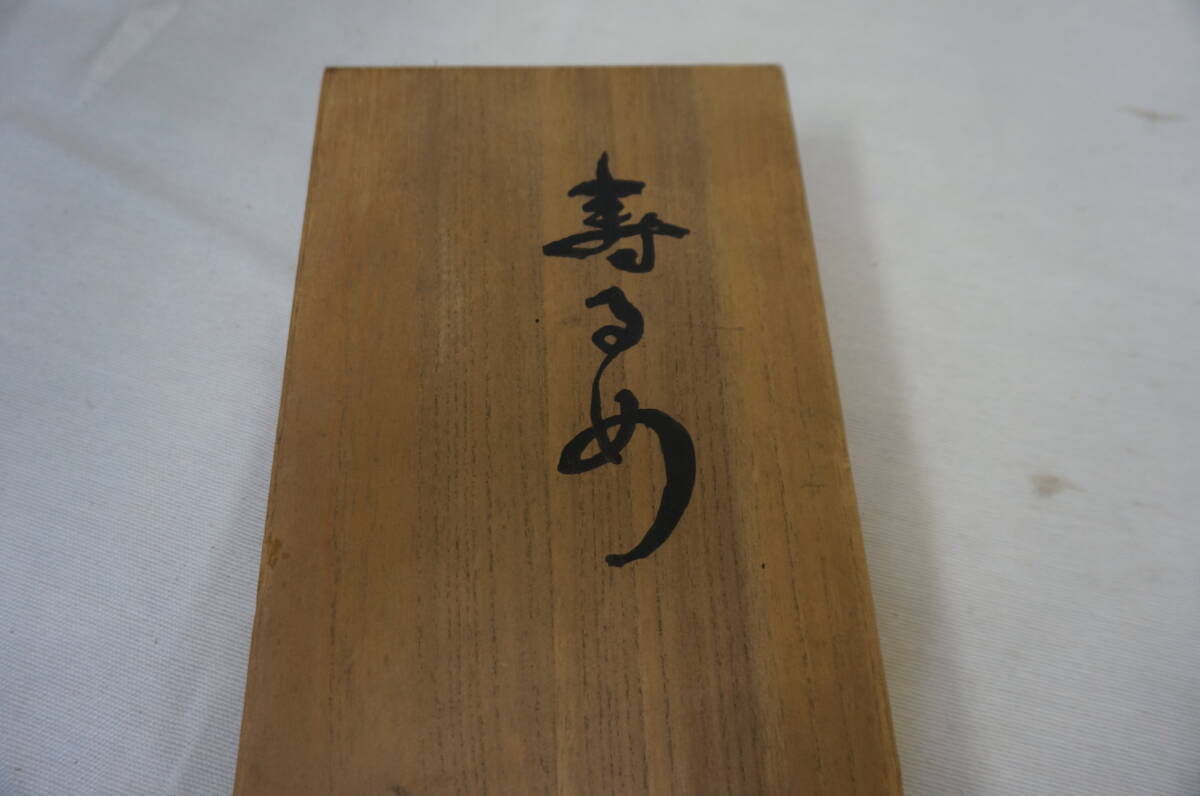 寿るめ